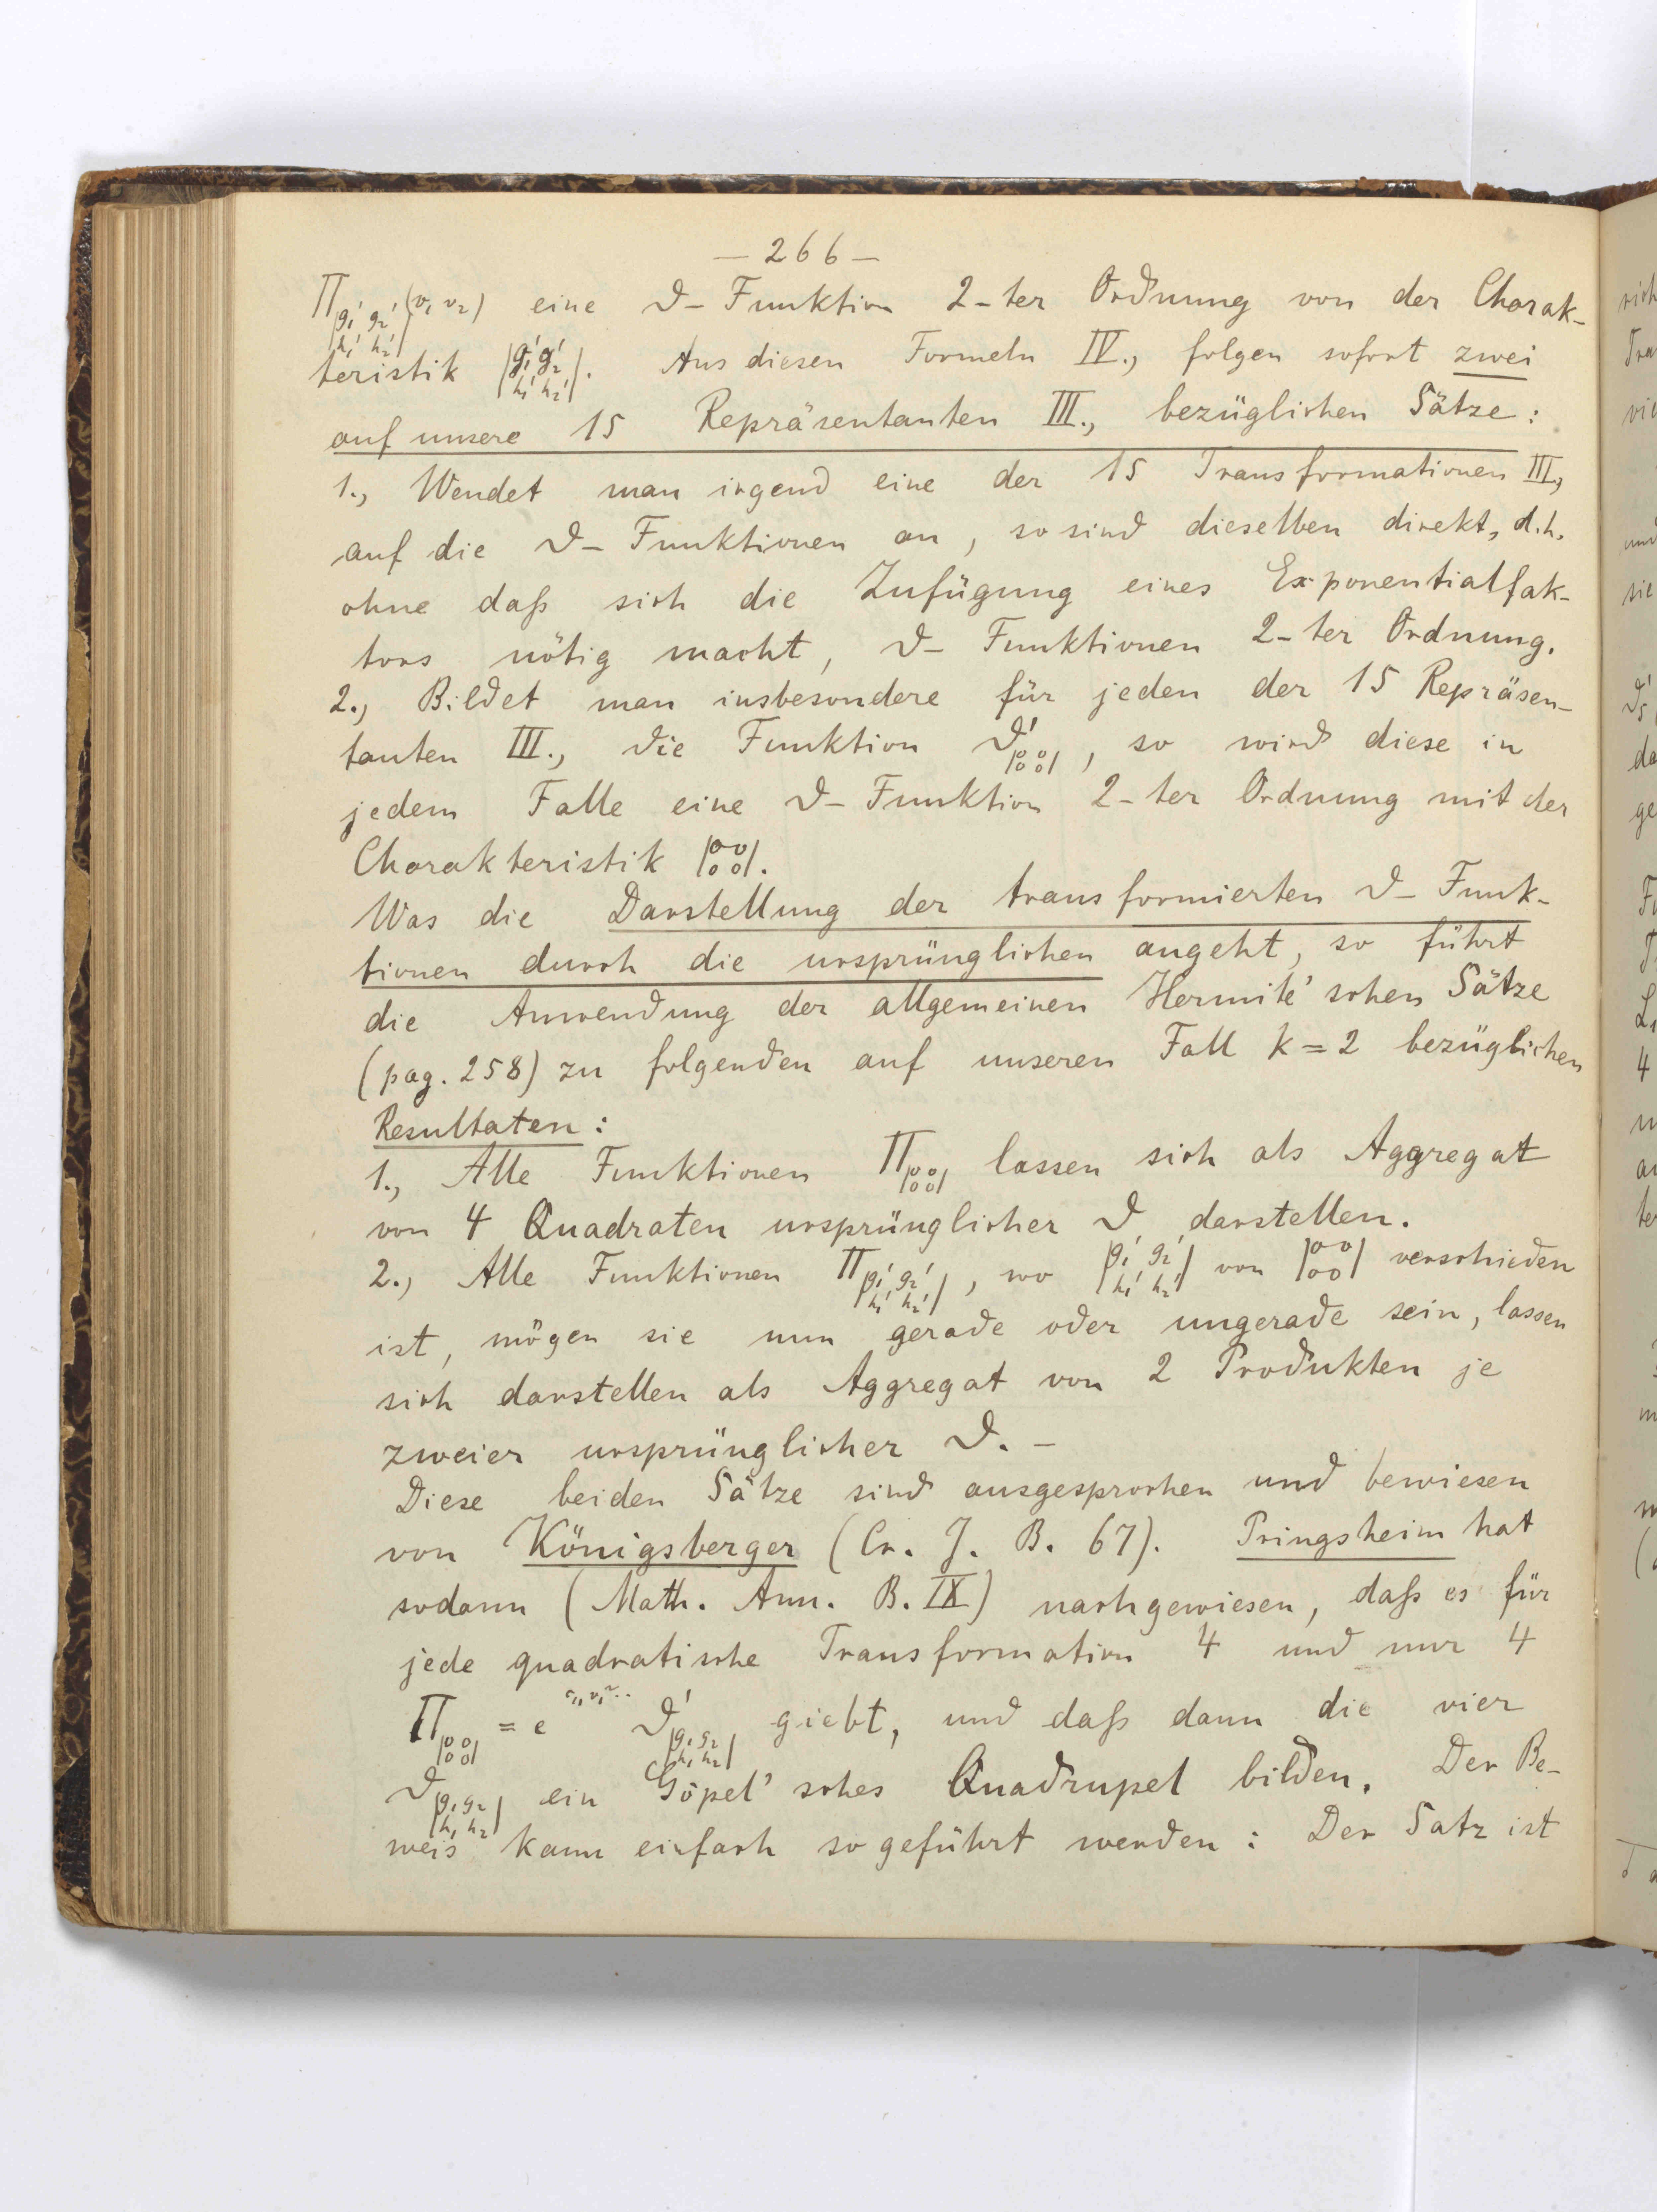 — 266 —
Π|g₁' g₂'|(v₁ v₂) eine ϑ- Funktion 2-ter Ordnung von der Charak-
|h₁' h₂'|
teristik |g₁' g₂'|. Aus diesen Formeln IV., folgen sofort zwei
|h₁' h₂'|
auf unsere 15 Repräsentanten III., bezüglichen Sätze:
1., Wendet man irgend eine der 15 Transformationen III.,
auf die ϑ- Funktionen an, so sind dieselben direkt, d.h.
ohne daß sich die Zufügung eines Exponentialfak-
tors nötig macht, ϑ- Funktionen 2-ter Ordnung.
2., Bildet man insbesondere für jeden der 15 Repräsen-
tanten III., die Funktion ϑ'|0 0|, so wird diese in
|0 0|
jedem Falle eine ϑ- Funktion 2-ter Ordnung mit der
Charakteristik |0 0|.
|0 0|
Was die Darstellung der transformierten ϑ- Funk-
tionen durch die ursprünglichen angeht, so führt
die Anwendung der allgemeinen Hermite'schen Sätze
(pag. 258) zu folgenden auf unseren Fall k = 2 bezüglichen
Resultaten:
1., Alle Funktionen Π|0 0| lassen sich als Aggregat
|0 0|
von 4 Quadraten ursprünglicher ϑ darstellen.
2., Alle Funktionen Π|g₁' g₂'|, wo |g₁' g₂'| von |0 0| verschieden
|h₁' h₂'| |h₁' h₂'| |0 0|
ist, mögen sie nun gerade oder ungerade sein, lassen
sich darstellen als Aggregat von 2 Produkten je
zweier ursprünglicher ϑ. –
Diese beiden Sätze sind ausgesprochen und bewiesen
von Königsberger (Cr. J. B. 67). Pringsheim hat
sodann (Math. Ann. B. IX) nachgewiesen, daß es für
jede quadratische Transformation 4 und nur 4
Π|0 0| = e^{c₁₁v₁²..} ϑ'|g₁ g₂| giebt, und daß dann die vier
|0 0| |h₁ h₂|
ϑ|g₁ g₂| ein Göpel'sches Quadrupel bilden. Der Be-
|h₁ h₂|
weis kann einfach so geführt werden: Der Satz ist